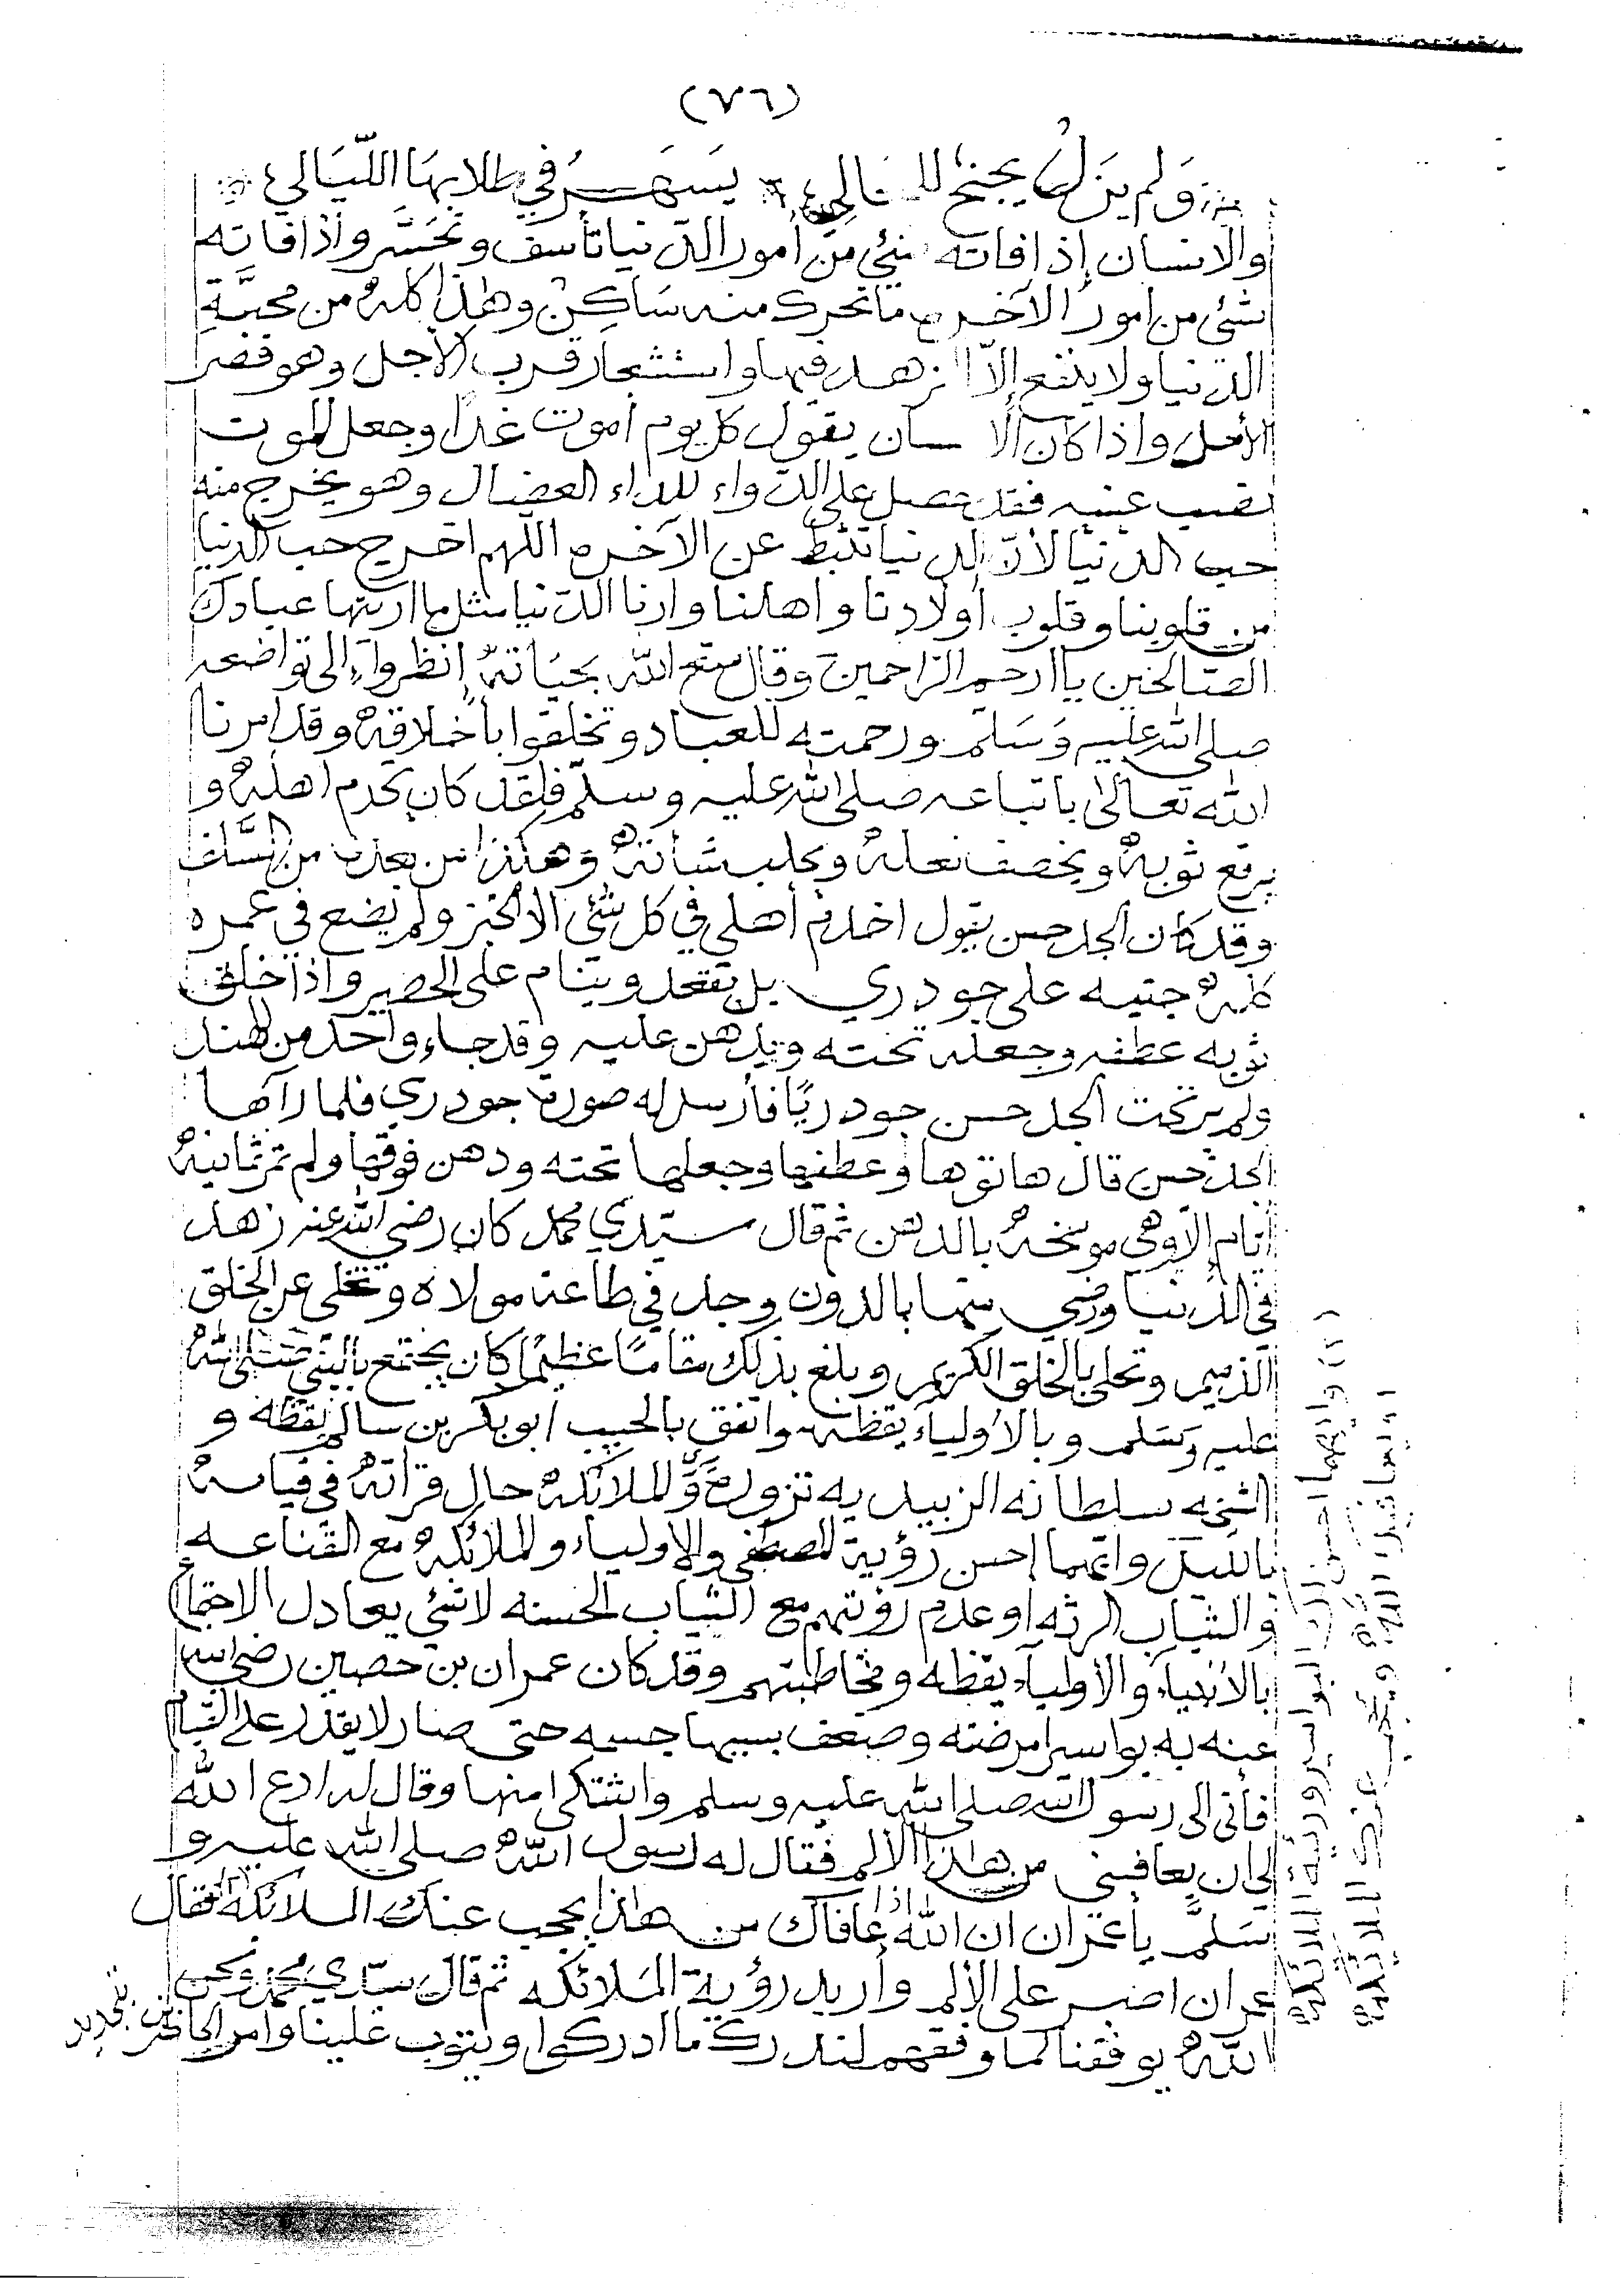 (٧٦)
وَلم يزل يجنح للمَعَالي * يَسهَرُ في طلابهَا اللّيَالي
والانسان إذا فاته شئي مِن أمور الدنيا تأسف وتحَسَّر واذا فاته
شئي من امور الآخره ما تحرك منه سَاكِنْ وهٰذا كلهُ من محبَّةِ
الدنيا ولا ينفع إلّا الزهد فيها واستشعار قرب الأجل وهو قصر
الأمل واذا كان الانسان يقول كل يوم اموت غدًا وجعل الموت
نصب عينيه فقد حصل على الدواء للداء العضال وهو يخرج منه
حب الدنيا لأنّ الدنيا تثبط عن الآخره اللهم اخرج حب الدنيا
من قلوبنا وقلوب أولادنا واهلنا وارنا الدنيا مثل ما اريتها عبادك
الصَّالحين يا ارحم الرّاحمين وقال متع الله بحيَاتهْ انظروا إلى تواضعه
صلى الله عليه وَسَلم ورحمته للعباد وتخلقوا بأخلاقهْ وقد امرنا
الله تعالىٰ باتباعه صلى الله عليه وسلّم فلقد كان يخدم اهلهْ و
يرقع ثوبهْ ويخصف نعلهْ ويحلب شاتهْ وهٰكذا من بعده من السَّلف
وقد كان الجد حسن يقول اخدم أهلي في كل شئي الا الخبز ولم يضع في عمره
كلهْ جنبه على جودري بل يقعد وينام على الحصير واذا خلق
ثوبه عطفه وجعله تحته ويدهن عليه وقد جاء واحد من الهند
ولم ير تحت الجد حسن جودريًا فأرسل له صورة جودري فلما رآها
الجد حسن قال هاتوها وعطفها وجعلها تحته ودهن فوقها ولم تمر ثمانيهْ
أيام إلّا وهي موسخهْ بالدهن ثم قال سيّدي محمد كان رضي الله عنه زهد
في الدنيا ورضي منها بالدون وجد في طاعة مولاه وتخلى عن الخلق
الذميم وتحلى بالخلق الكريم وبلغ بذلك مقامًا عظيمًا كان يجتمع بالنبي صلى اللهُ
عليه وسَلم وبالأولياء يقظه واتفق بالحبيب ابو بكر بن سالم يقظه و
الشيخه سلطانه الزبيديه تزوره والملائكهْ حال قرآتهْ في قيامهْ
بالليل وايّهما احسن رؤية المصطفى والاولياء والملائكهْ مع القناعه
والثياب الرثه او عدم رؤيتهم مع الثياب الحسنه لا شئي يعادل الاجتماع
بالانبياء والأولياء يقظه ومخاطبتهم وقد كان عمران بن حصين رضي الله
عنه به بواسير امرضته وضعف بسببها جسمه حتى صار لا يقدر على القيام
فأتى الى رسول الله صلى الله عليه وسلم واشتكى منها وقال له ادع الله
لي ان يعافيني من هٰذا الألم فقال له رسول اللهْ صلى الله عليه و
سَلَّم يا عمران ان اللهُ اذا عافاك من هٰذا يحجب عنك الملائكهْ فقال
عمران اصبر على الألم وأريد رؤية المَلائكه ثم قال سيّدي محمد وعسى
اللهْ يوفقنا كما وفقهم لندرك ما ادركوا ويتوب علينا وامر الحاضرين بتجديد
(١) وايهما احسن